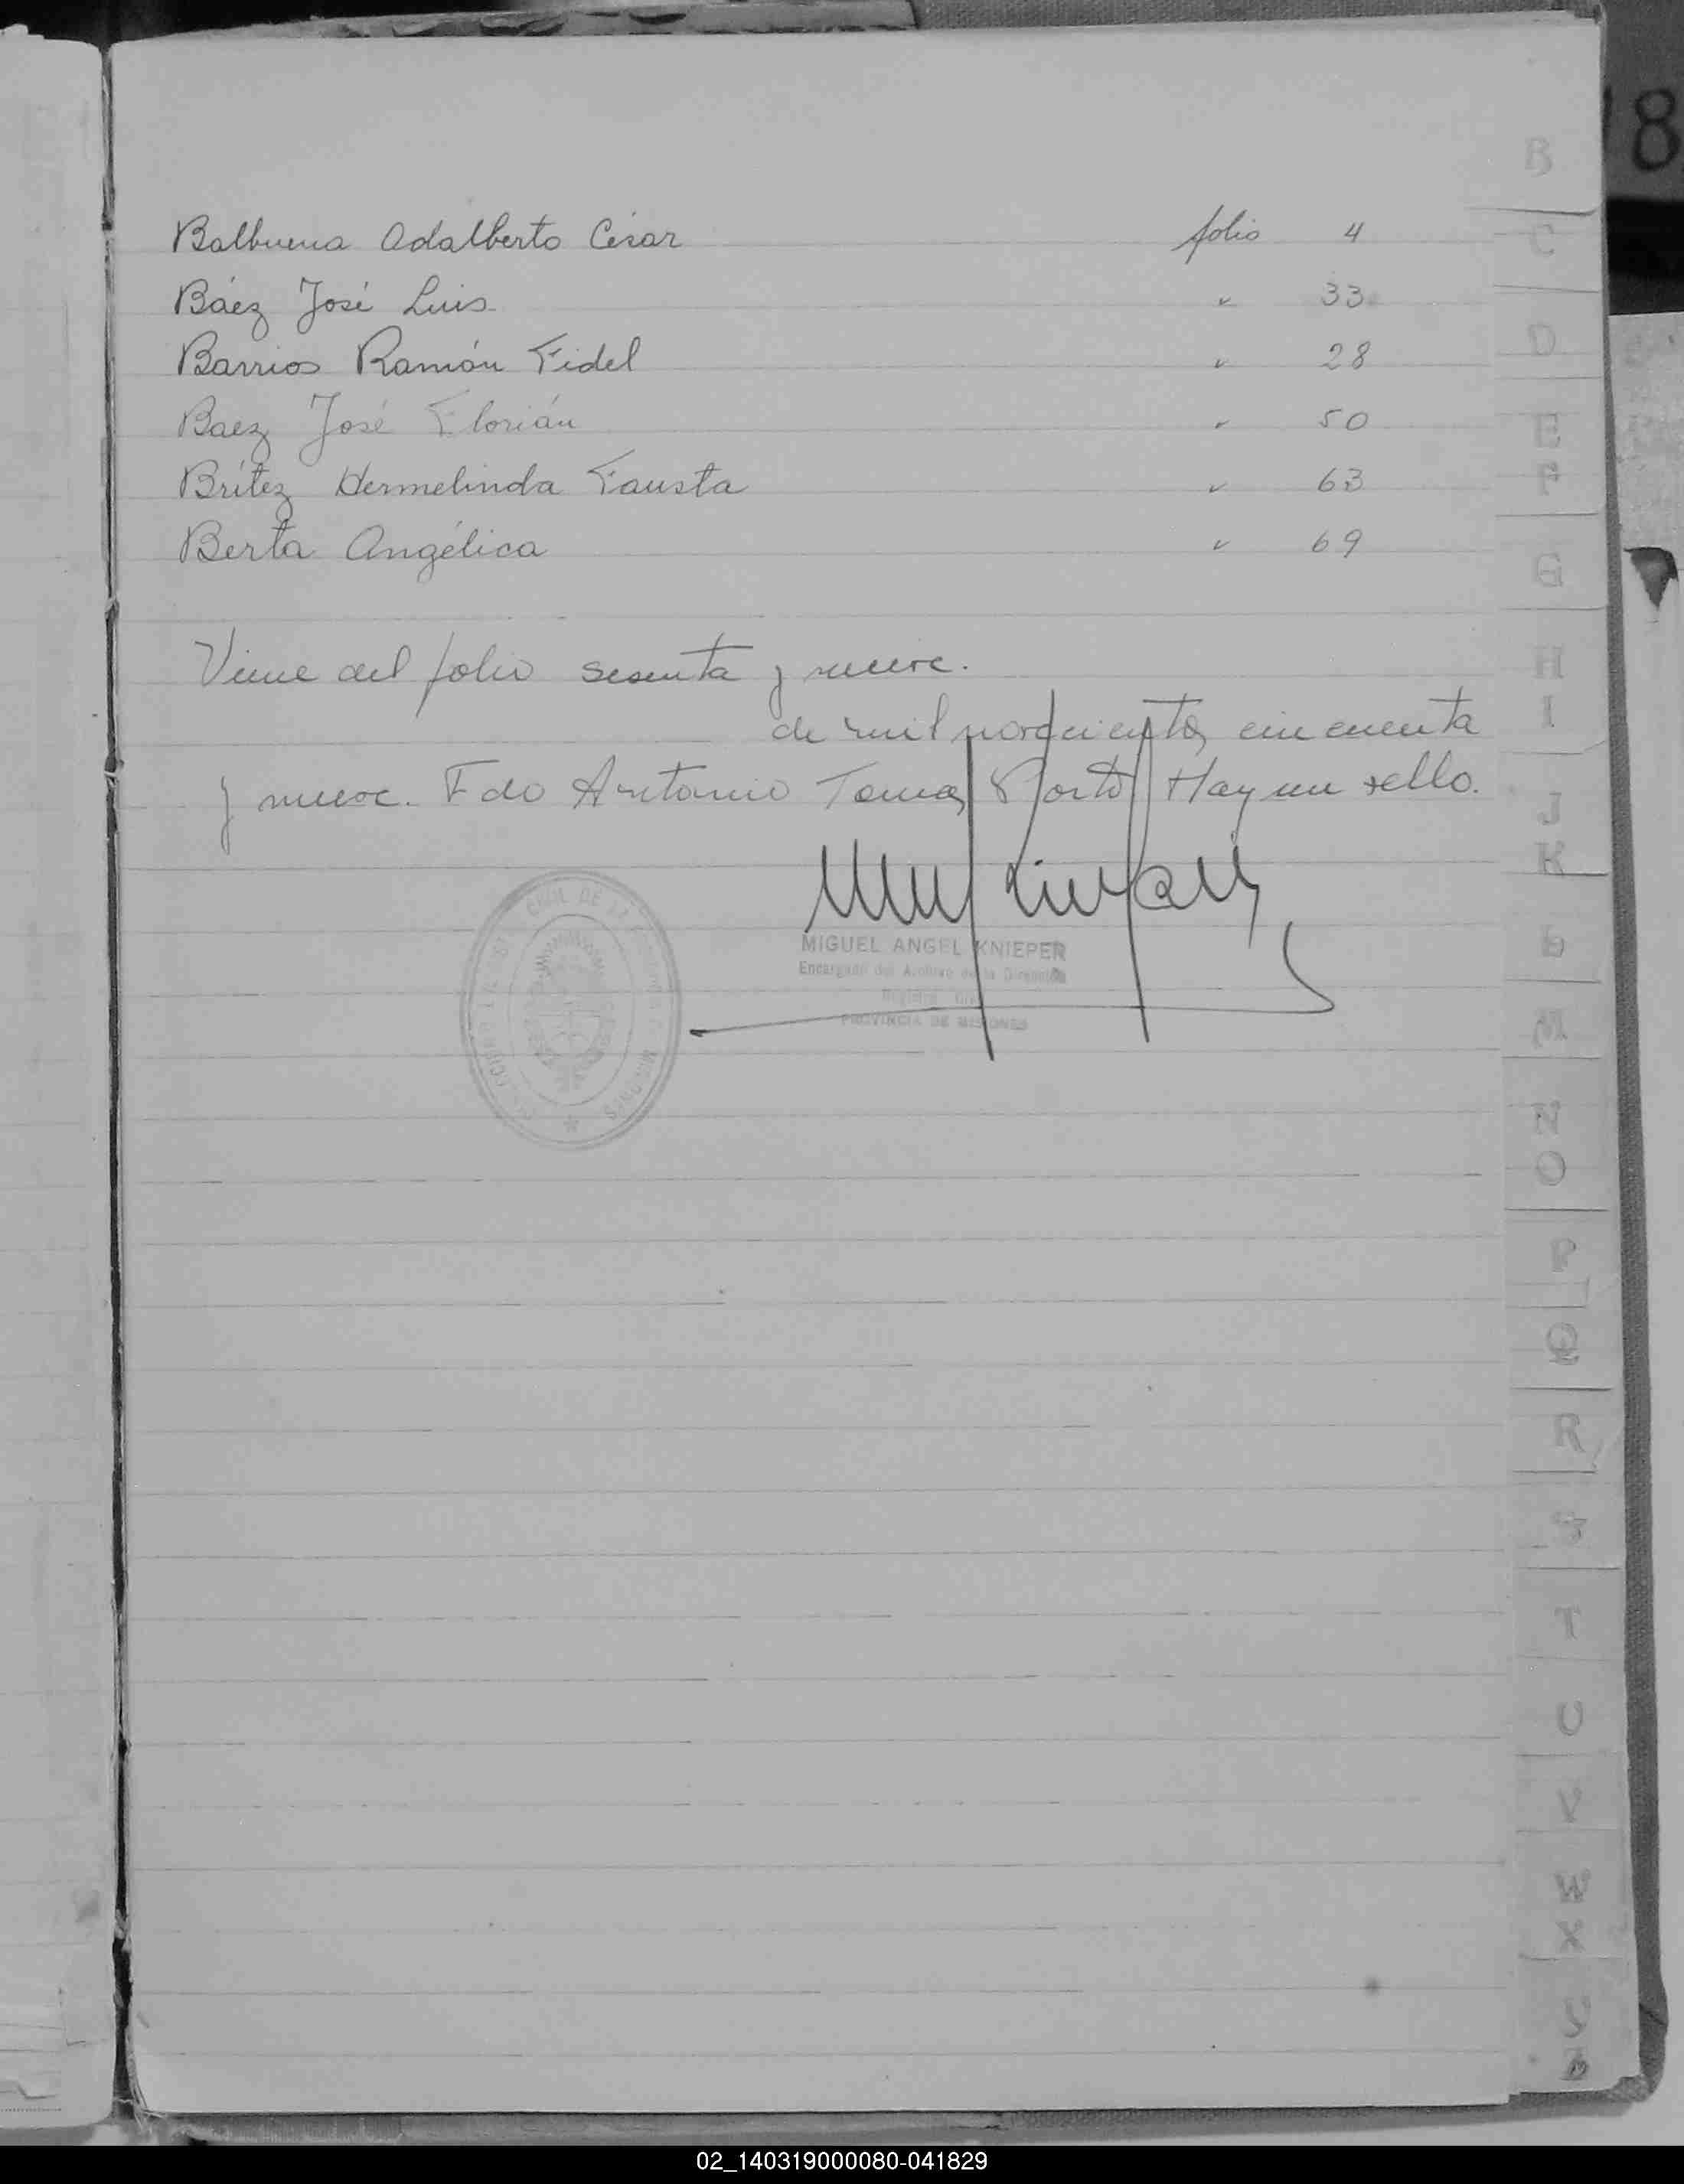 Balbuena Adalberto César folio 4
Báez José Luis " 33
Barrios Ramón Fidel " 28
Baez José Florián " 50
Brítez Hermelinda Fausta " 63
Berta Angélica " 69
Viene del folio sesenta y nueve.
de mil novecientos cincuenta
y nueve. Fdo Antonio Tomas Porto Hay un sello.
MIGUEL ANGEL KNIEPER
Encargado del Archivo de la Dirección
Registro Civil
PROVINCIA DE MISIONES
CIVIL DE LA
MISIONES
B
C
D
E
F
G
H
I
J
K
M
N
O
P
Q
R
S
T
U
V
W
X
8
02_140319000080-041829